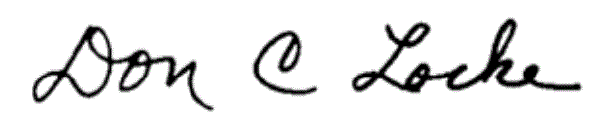 Don C Locke